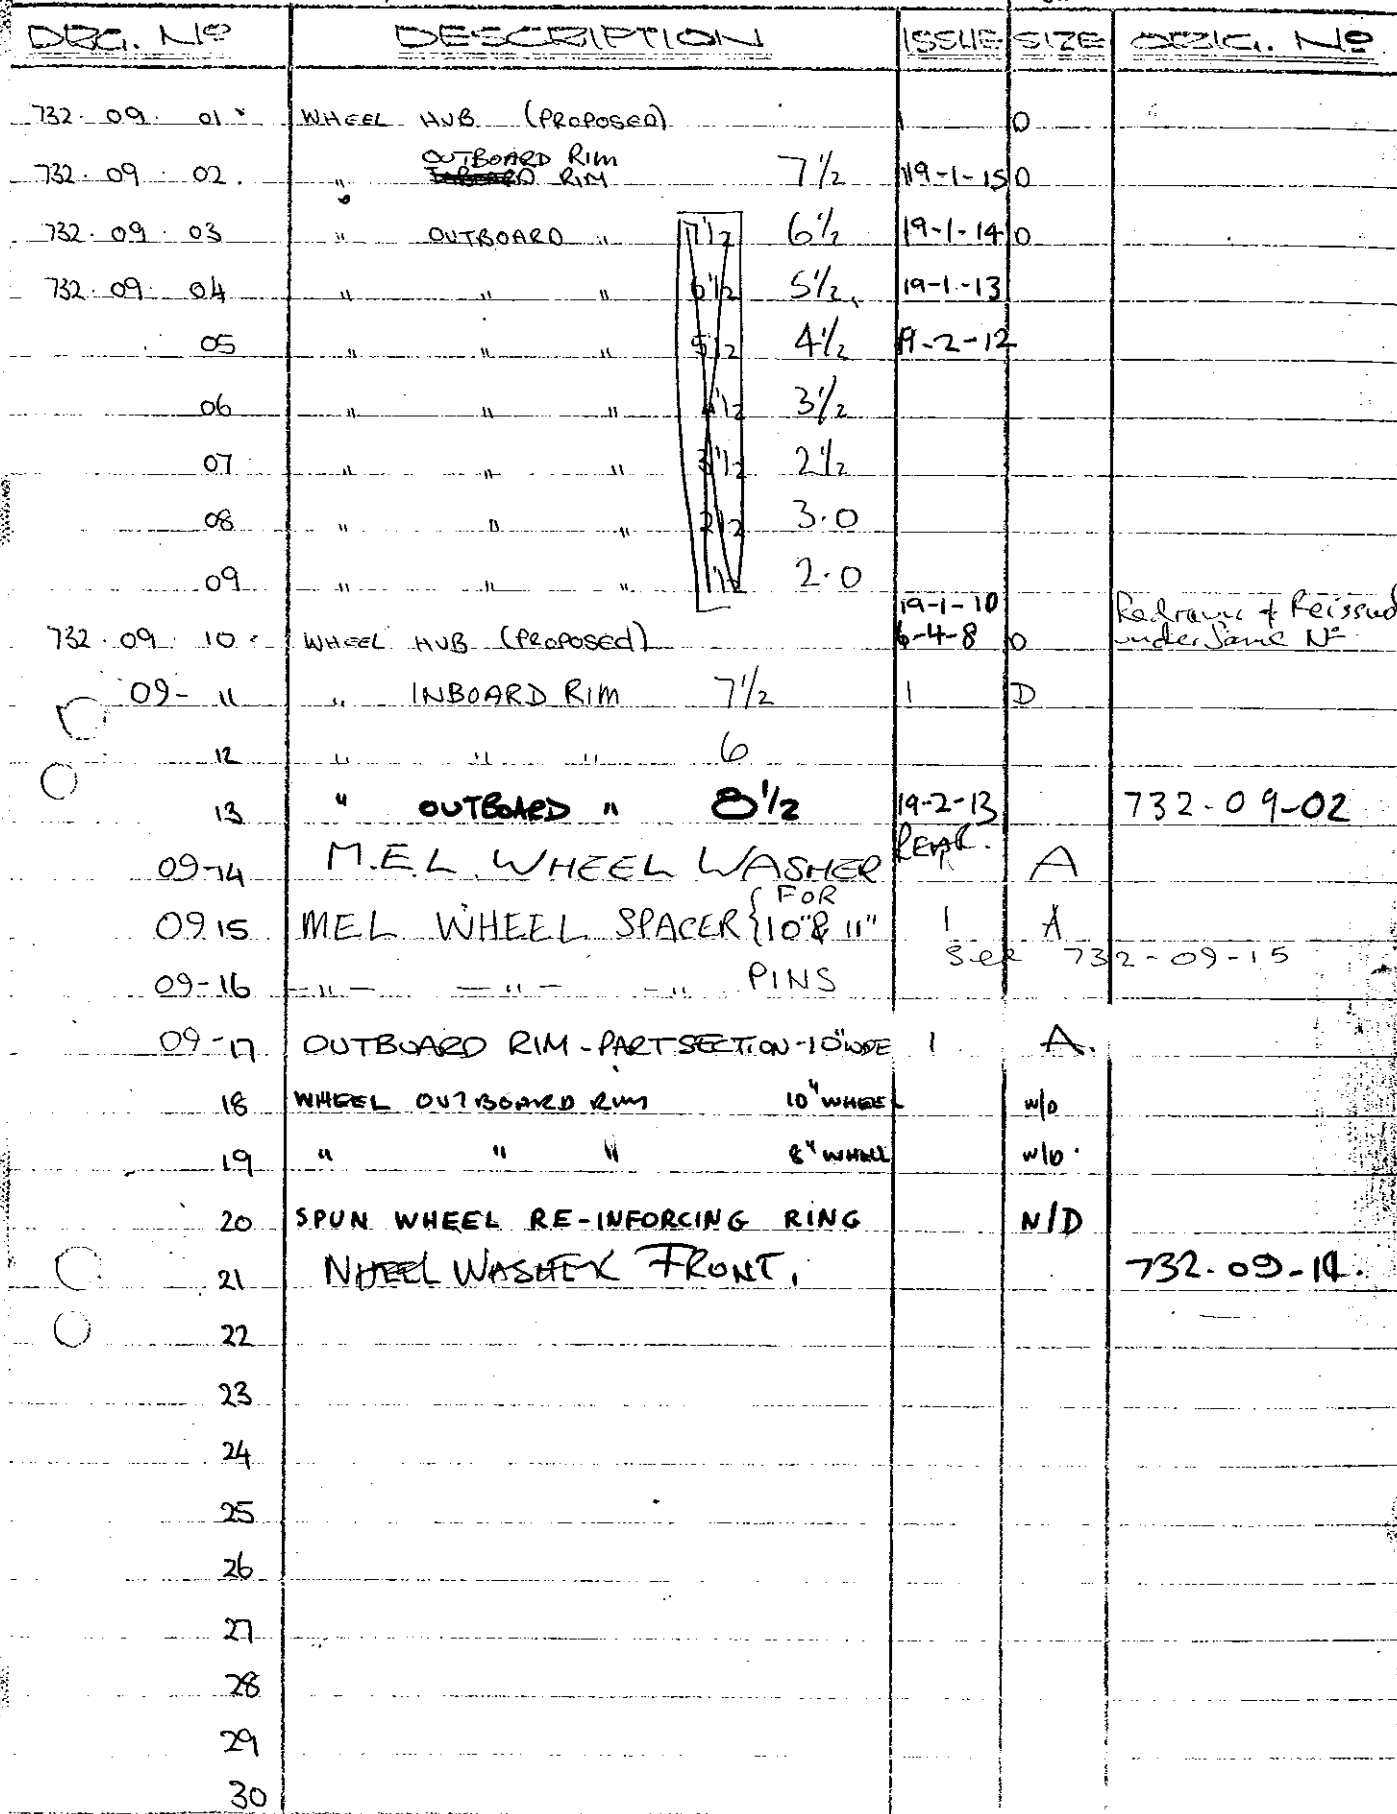 DRG. Nº DESCRIPTION ISSUE SIZE ORIG. Nº
732. 09. 01 WHEEL HUB (PROPOSED) 1 D
732. 09. 02. " OUTBOARD RIM 7 1/2 19-1-15 D
RIM
732. 09. 03 " OUTBOARD " 7 1/2 6 1/2 19-1-14 D
732. 09. 04 " " " 6 1/2 5 1/2 19-1-13
05 " " " 5 1/2 4 1/2 19-2-12
06 " " " 4 1/2 3 1/2
07 " " " 3 1/2 2 1/2
08 " " " 2 1/2 3.0
09 " " " 1 1/2 2.0
732. 09. 10 WHEEL HUB (PROPOSED) 19-1-10 6-4-8 D Redrawn & Reissued under Same Nº
09- 11 " INBOARD RIM 7 1/2 1 D
12 " " " 6
13 " OUTBOARD " 8 1/2 19-2-13 732-09-02
REAR.
09-14 M.E.L. WHEEL WASHER 1 A
09.15 MEL WHEEL SPACER { FOR 10" & 11" 1 A
See 732-09-15
09-16 -"- -"- -" PINS
09-17 OUTBOARD RIM - PART SECTION - 10" WIDE 1 A.
18 WHEEL OUTBOARD RIM 10" WHEEL W/D
19 " " " 8" WHEEL W/D
20 SPUN WHEEL RE-INFORCING RING N/D
21 WHEEL WASHER FRONT. 732-09-14.
22
23
24
25
26
27
28
29
30